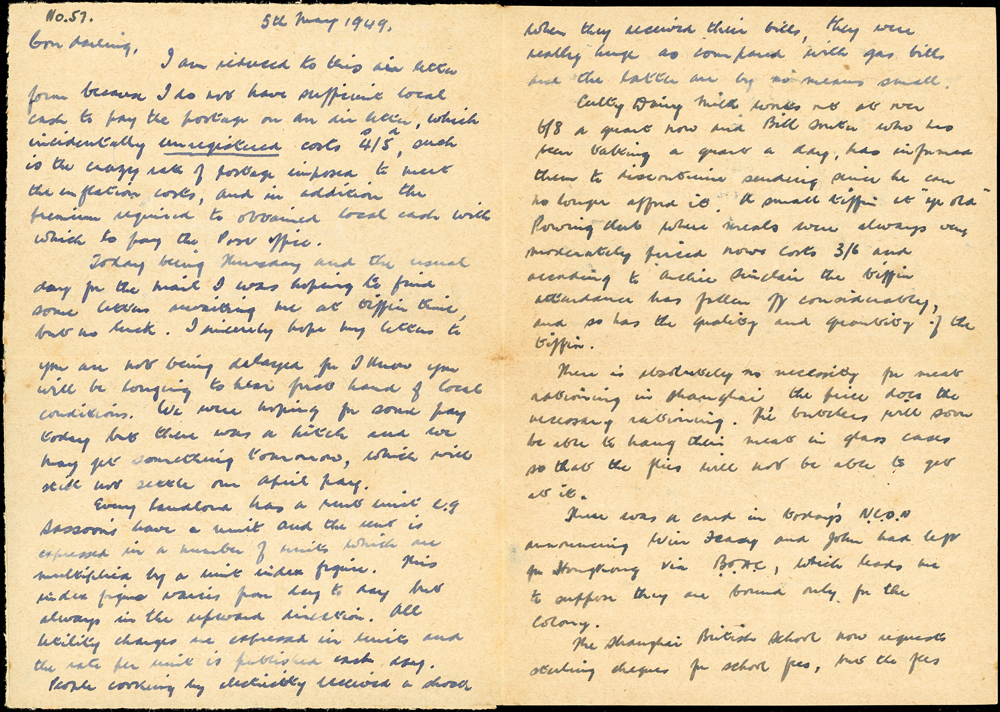 No. 57.
5th May 1949.
darling,
I am reduced to this air letter
form because I do not have sufficient local
cash to pay the postage on an air letter, which
incidentally unregistered costs 4s/5d, such
is the crazy rate of postage imposed to meet
the inflation costs, and in addition the
premium required to obtained local cash with
which to pay the Post Office.
Today being Thursday and the usual
day for the mail I was hoping to find
some letters awaiting me at tiffin time,
but no luck. I sincerely hope my letters to
you are not being delayed for I know you
will be longing to hear first hand of local
conditions. We were hoping for some pay
today but there was a hitch and we
may get something tomorrow, which will
still not settle our April pay.
Every landlord has a rent unit e.g
Sassoons have a unit and the rent is
expressed in a number of units which are
multiplied by a unit index figure. This
index figure varies from day to day but
always in the upward direction. All
utility charges are expressed in units and
the rate per unit is published each day.
People cooking by electricity received a shock
when they received their bills, they were
really huge as compared with gas bills
and the latter are by no means small.
Culty Dairy Milk works out at over
6/8 a quart now and Bill who has
been taking a quart a day, has informed
them to discontinue sending since he can
no longer afford it. A small tiffin at "ye old"
Rowing Club where meals were always very
moderately priced now costs 3/6 and
according to Archie Sinclair the tiffin
attendance has fallen off considerably,
and so has the quality and quantity of the
tiffin.
There is absolutely no necessity for meat
rationing in Shanghai the price does the
necessary rationing. The butchers will soon
be able to hang their meat in glass cases
so that the flies will not be able to get
at it.
There was a card in today's N.C.D.N
announcing and John had left
for Hongkong via B.O.A.C, which leads me
to suppose they are bound only for the
Colony.
The Shanghai British School now requests
sterling cheques for school fees, but the fees